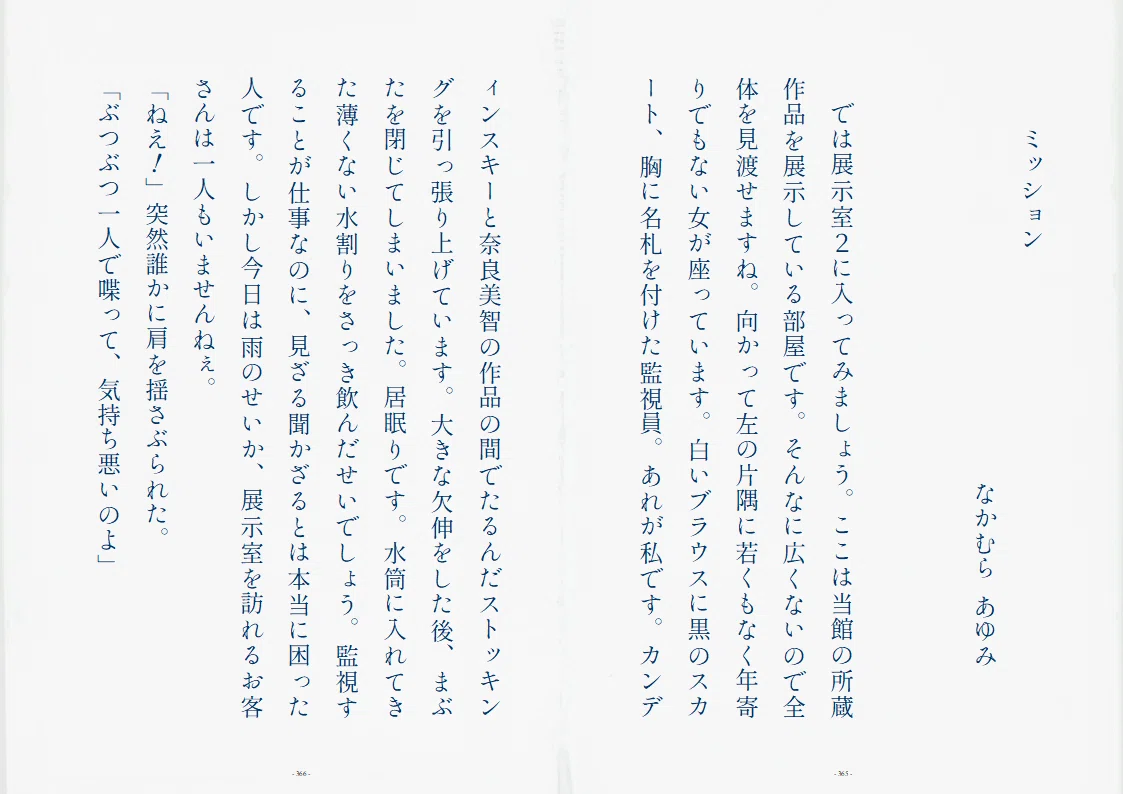 ミッション
なかむら あゆみ
では展示室２に入ってみましょう。ここは当館の所蔵
作品を展示している部屋です。そんなに広くないので全
体を見渡せますね。向かって左の片隅に若くもなく年寄
りでもない女が座っています。白いブラウスに黒のスカ
ート、胸に名札を付けた監視員。あれが私です。カンデ
- 365 -
ィンスキーと奈良美智の作品の間でたるんだストッキン
グを引っ張り上げています。大きな欠伸をした後、まぶ
たを閉じてしまいました。居眠りです。水筒に入れてき
た薄くない水割りをさっき飲んだせいでしょう。監視す
ることが仕事なのに、見ざる聞かざるとは本当に困った
人です。しかし今日は雨のせいか、展示室を訪れるお客
さんは一人もいませんねぇ。
「ねえ！」突然誰かに肩を揺さぶられた。
「ぶつぶつ一人で喋って、気持ち悪いのよ」
- 366 -